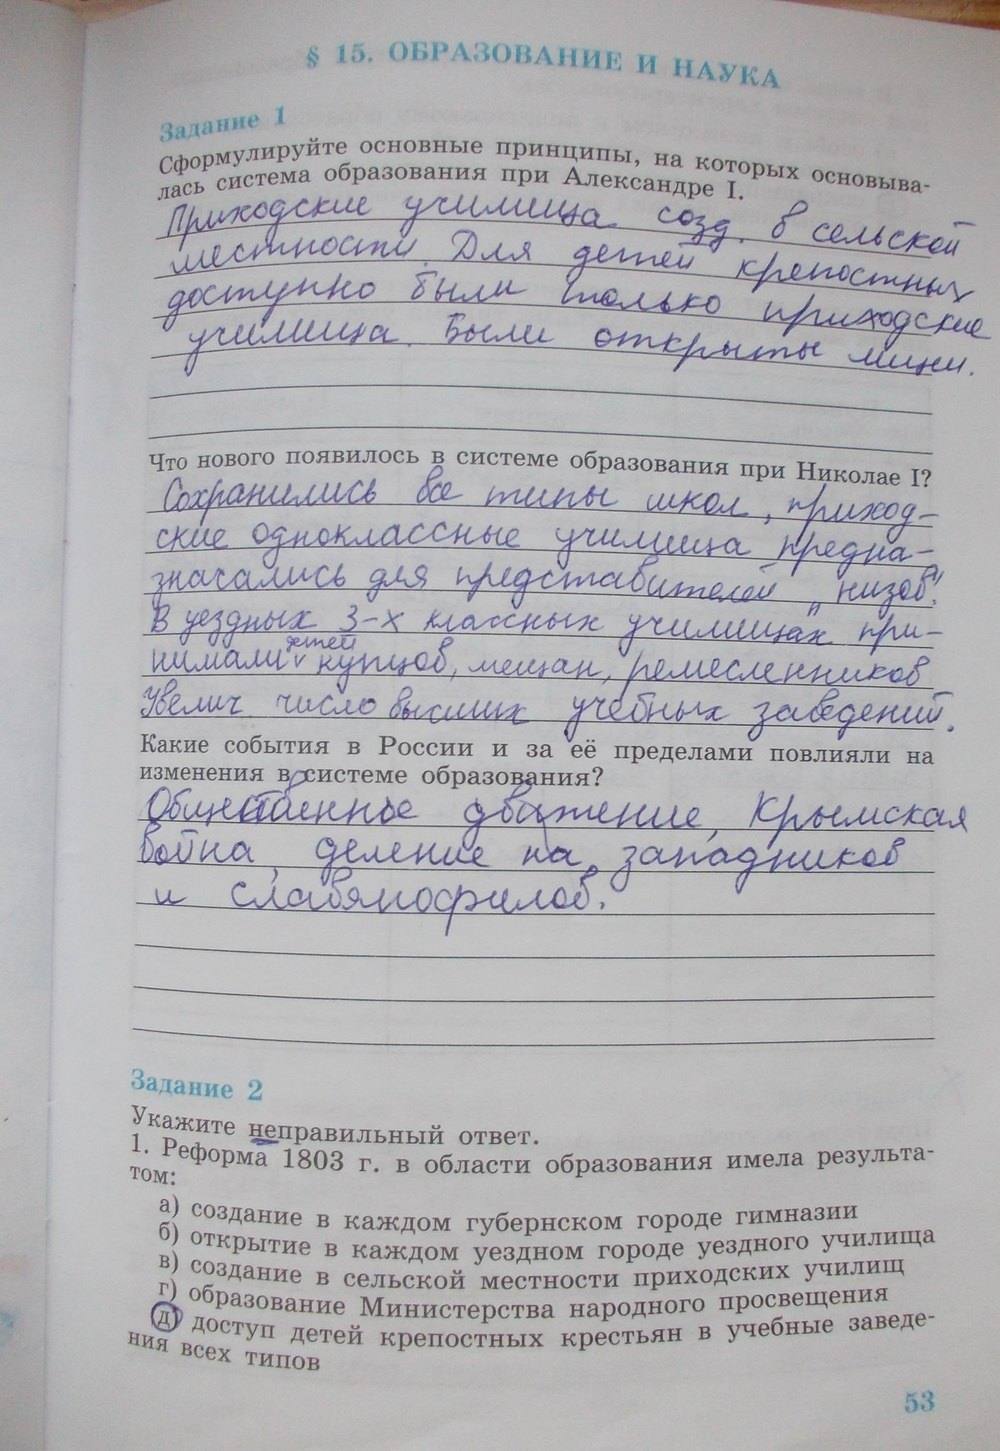 § 15. ОБРАЗОВАНИЕ И НАУКА
Задание 1
Сформулируйте основные принципы, на которых основыва-
лась система образования при Александре I.
Приходские училища созд. в сельской
местности. Для детей крепостных
доступно были только приходские
училища. Были открыты лицеи.
Что нового появилось в системе образования при Николае I?
Сохранились все типы школ, приход-
ские одноклассные училища предна-
значались для представителей "низов".
В уездных 3-х классных училищах при-
детей
нимали купцов, мещан, ремесленников
Увелич число высших учебных заведений.
Какие события в России и за её пределами повлияли на
изменения в системе образования?
Общественное движение, Крымская
война, деление на западников
и славянофилов.
Задание 2
Укажите неправильный ответ.
1. Реформа 1803 г. в области образования имела результа-
том:
а) создание в каждом губернском городе гимназии
б) открытие в каждом уездном городе уездного училища
в) создание в сельской местности приходских училищ
г) образование Министерства народного просвещения
д) доступ детей крепостных крестьян в учебные заведе-
ния всех типов
53